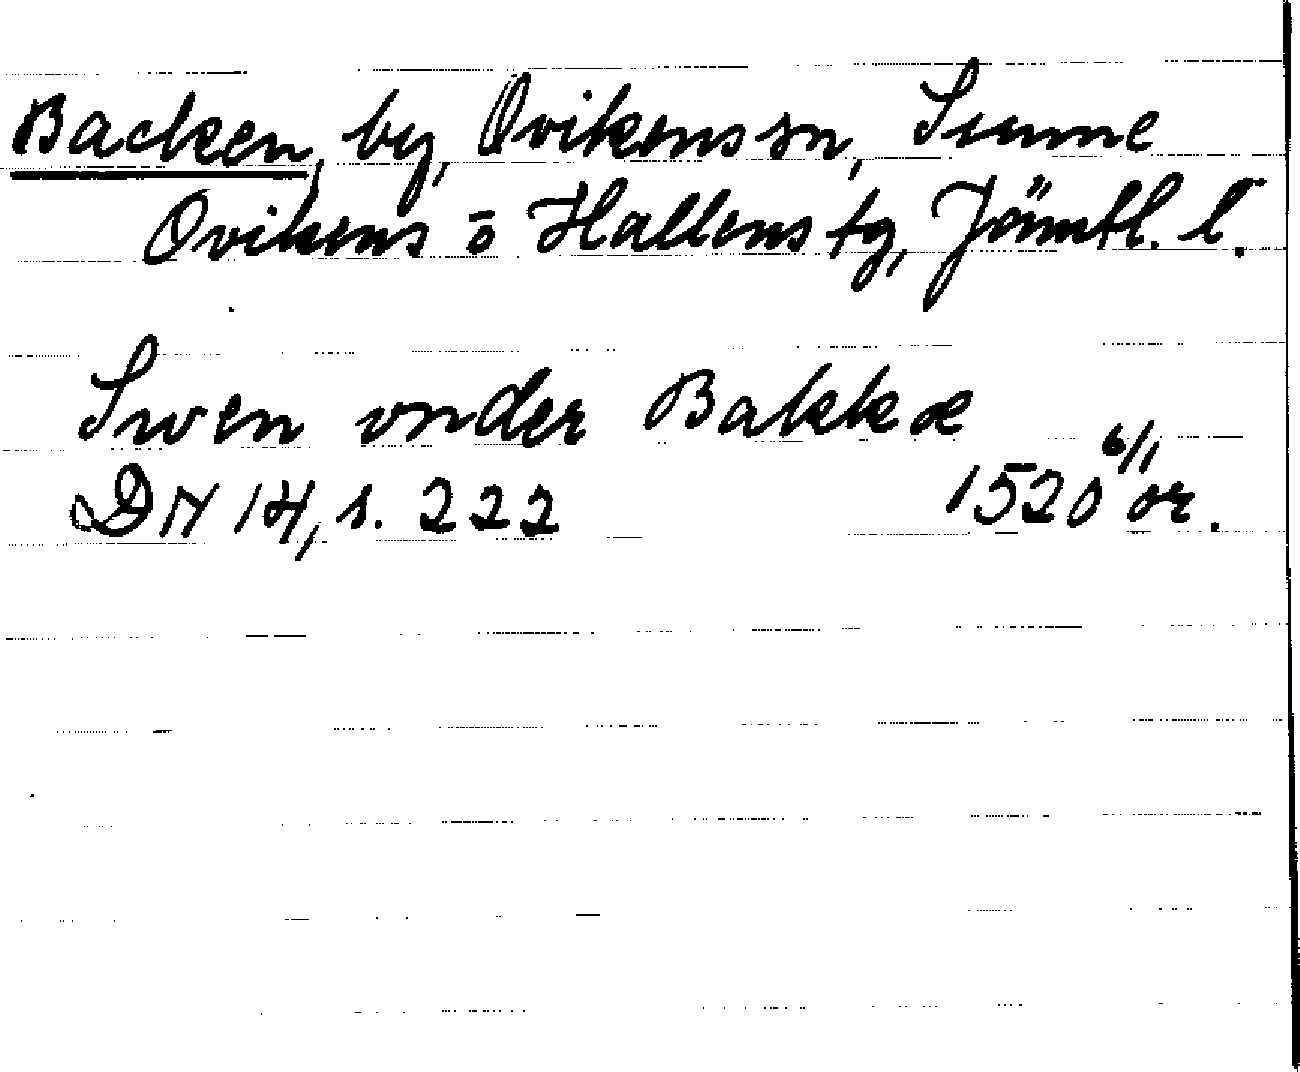 Backen, by, Ovikens sn, Sunne
Ovikens o Hallens tg, Jämtl. l.
Swen vnder Bakkæ
DN 14, s. 222 1520 6/1 or.